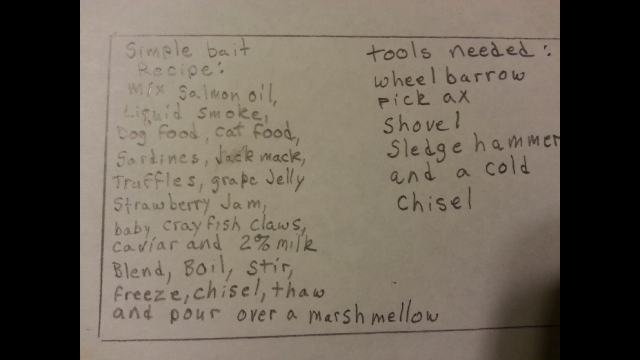 Simple bait
Recipe:
mix Salmon oil,
Liquid smoke,
Dog food, cat food,
Sardines, Jack mack,
Truffles, grape Jelly
Strawberry Jam,
baby crayfish claws,
caviar and 2% milk
Blend, Boil, Stir,
freeze, chisel, thaw
and pour over a marshmellow
tools needed:
wheelbarrow
pick ax
Shovel
Sledge hammer
and a cold
chisel